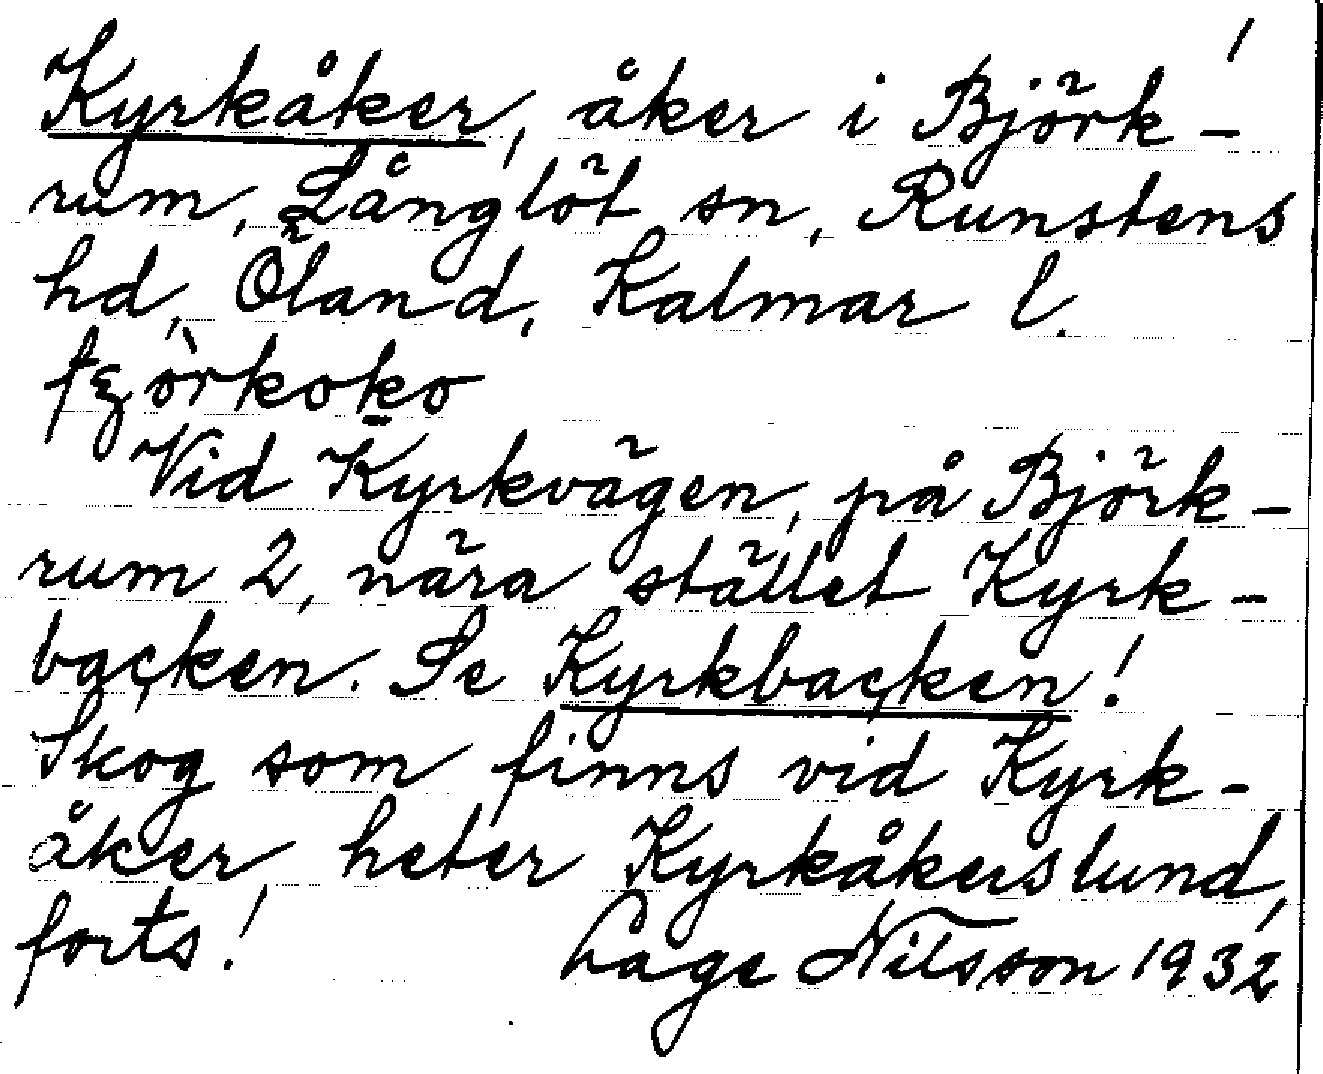 /
Kyrkåker, åker i Björk-
rum, Långlöt sn, Runstens
hd, Öland, Kalmar l.
Vid Kyrkvägen, på Björk-
rum 2, nära stället Kyrk-
backen. Se Kyrkbacken!
Skog som finns vid Kyrk-
åker heter Kyrkåkerslund,
forts! Lage Nilsson 1932